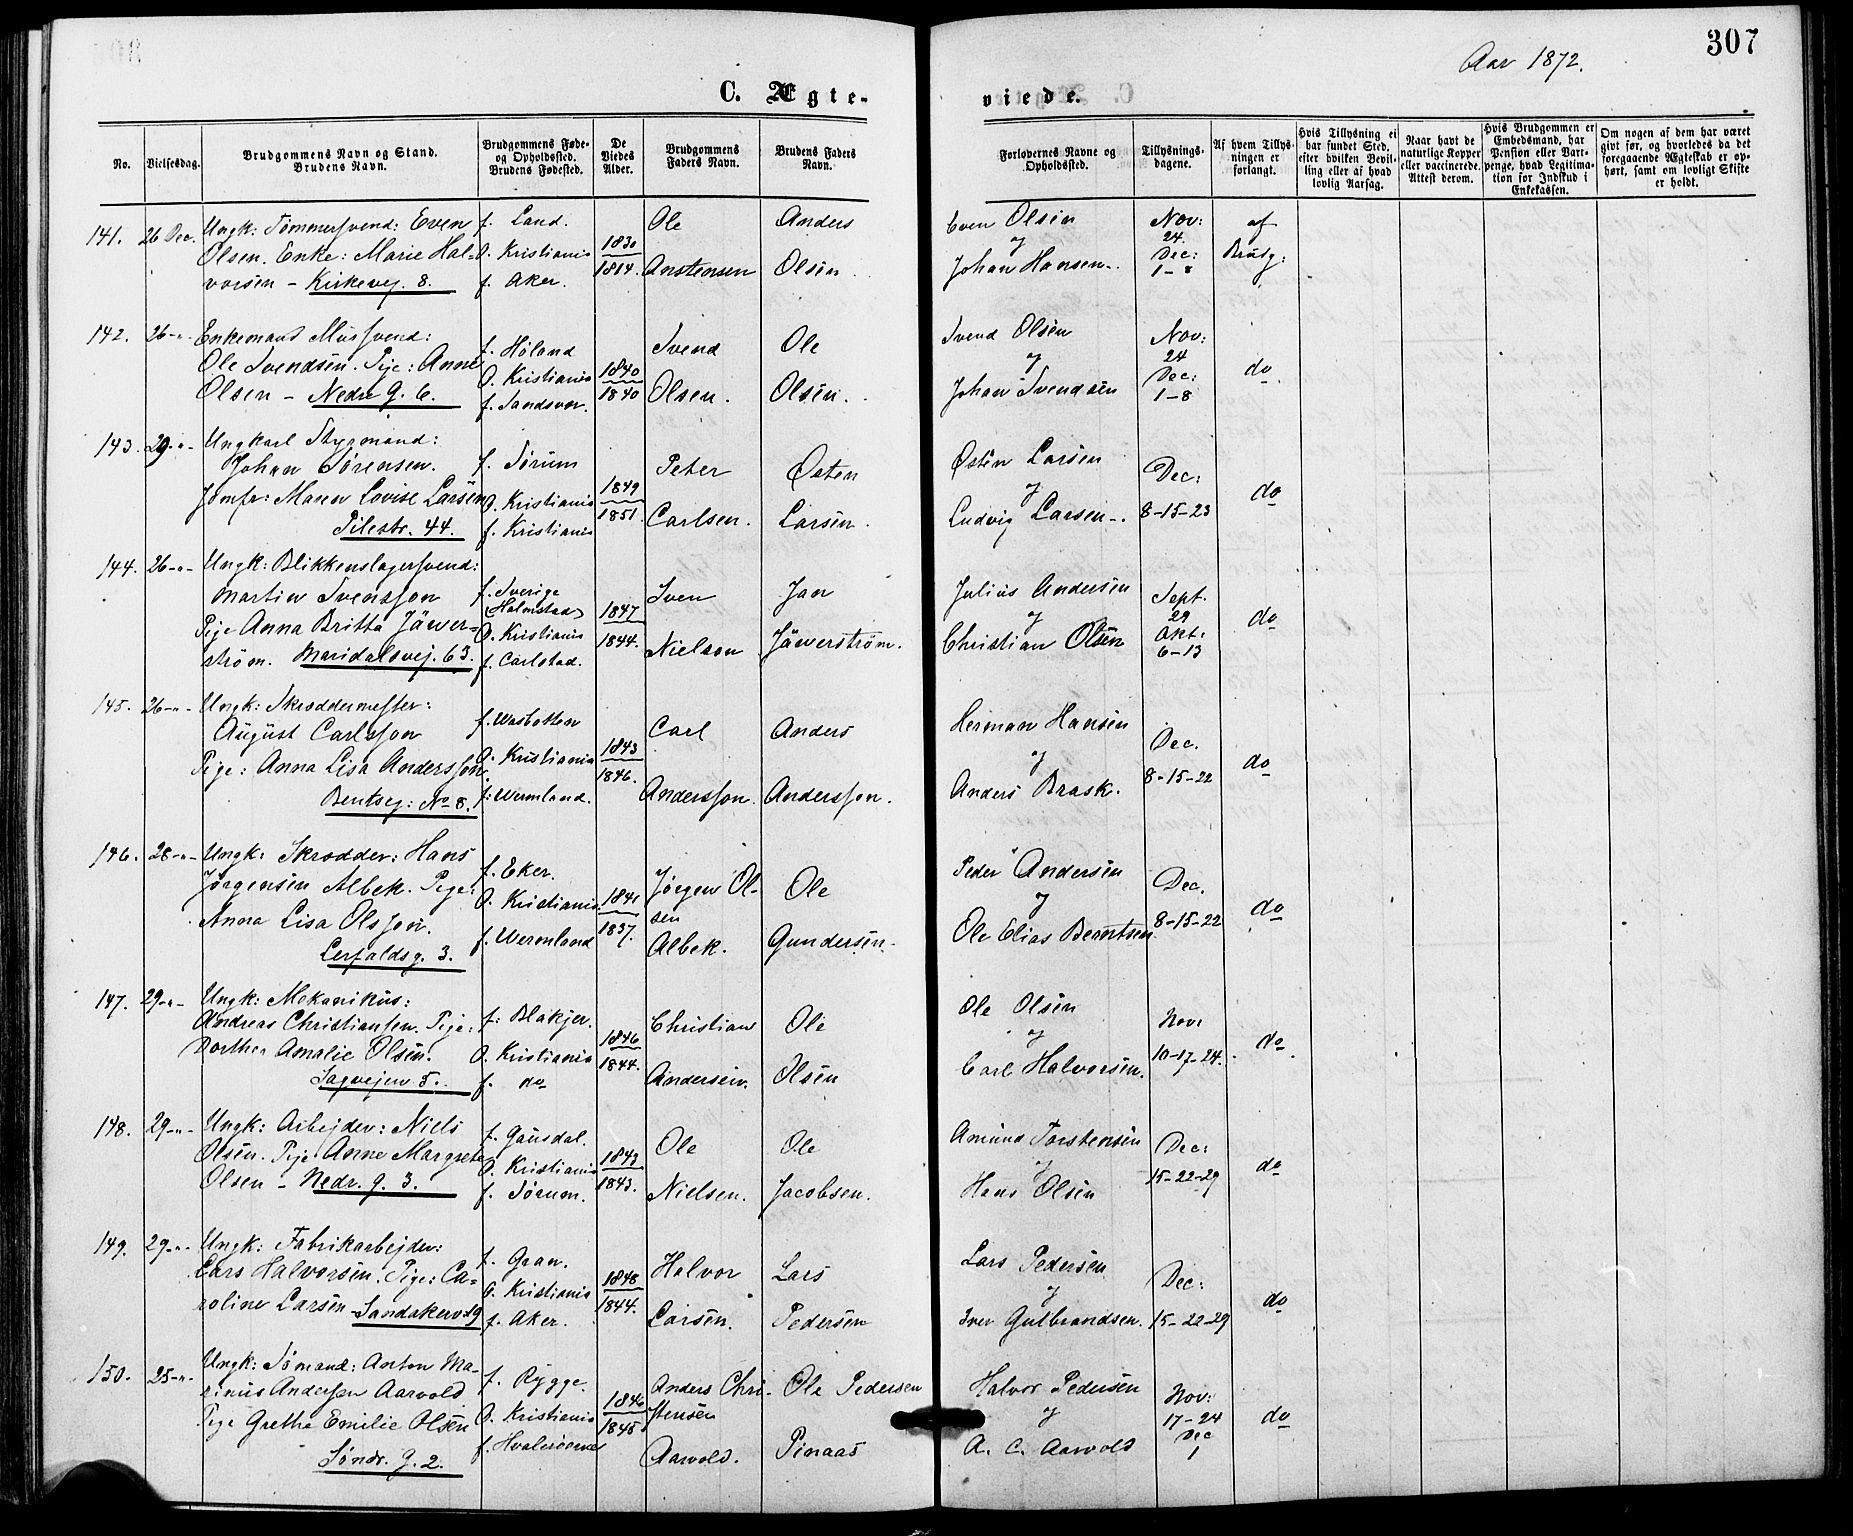 307
Aar 1872.
C. Ægte-
viede.
No.
Vielsesdag.
Brudgommens Navn og Stand.
Brudens Navn.
Brudgommens Føde-
og Opholdssted.
Brudens Fødested.
De
Viedes
Alder.
Brudgommens
Faders Navn.
Brudens Faders
Navn.
Forlovernes Navne og
Opholdssted.
Tillysnings-
dagene.
Af hvem Tillys-
ningen er
forlangt.
Hvis Tillysning ei
har fundet Sted,
efter hvilken Bevil-
ling eller af hvad
lovlig Aarsag.
Naar havt de
naturlige Kopper
eller vaccinerede.
Attest derom.
Hvis Brudgommen er
Embedsmand, har
Pension eller Vart-
penge, hvad Legitima-
tion for Indskud i
Enkekassen.
Om nogen af dem har været
givt før, og hvorledes da det
foregaaende Ægteskab er op-
hørt, samt om lovligt Skifte
er holdt.
141. 26 Dec. Ungk: Tømmersvend: Even
Olsen. Enke: Marie Hal-
vorsen - Kirkevej. 8.
f. Land.
O. Kristiania
f. Aker.
1830
1814.
Ole
Anstensen
Anders
Olsen
Even Olsen
og
Johan Hansen.
Nov:
24.
Dec:
1-8
af
Brudg:
142. 26-"- Enkemand Mursvend:
Ole Svendsen. Pige: Anne
Olsen - Nedre G. 6.
f. Høland
O. Kristiania
f. Sandsvær.
1840
1840
Svend
Olsen.
Ole
Olsen.
Svend Olsen
og
Johan Svendsen
Nov:
24
Dec:
1-8
do
143. 29-"- Ungkarl Styrmand:
Johan Sørensen.
Jomfr: Maren Lovise Larsen
Pilestr. 44.
f. Sørum
O. Kristiania
f. Kristiania
1849
1851.
Peter
Carlsen.
Østen
Larsen.
Østen Larsen
og
Ludvig Larsen.
Dec:
8-15-23
do
144. 26-"- Ungk: Blikkenslagersvend:
Martin Svensson
Pige Anna Britta Jäwer-
strøm. Maridalsvej. 63.
f. Sverige
(Halmstad)
O. Kristiania
f. Carlstad.
1847
1844.
Sven
Nielson
Jan
Jäwerstrøm.
Julius Andersen
og
Christian Olsen
Sept.
29
Okt:
6-13
do
145. 26-"- Ungk: Skræddermester:
August Carlsson
Pige: Anna Lisa Andersson.
Bentseg: No 8.
f. Wasbotten
O. Kristiania
f: Wermland.
1843
1846.
Carl
Andersson.
Anders
Andersson.
Herman Hansen
og
Anders Brask.
Dec.
8-15-22
do
146. 28-"- Ungk: Skrædder: Hans
Jørgensen Albek. Pige:
Anna Lisa Olsson.
Lerfaldsg. 3.
f. Eker.
O. Kristiania
f. Wermland
1841
1837.
Jørgen Ol-
sen
Albek.
Ole
Gundersen.
Peder Andersen
og
Ole Elias Berntsen
Dec.
8-15-22
do
147. 29-"- Ungk: Mekanikus:
Andreas Christiansen. Pige:
Dorthea Amalie Olsen.
Sagvejen 5.
f: Blakjer.
O. Kristiania
f. do
1846
1844.
Christian
Andersen.
Ole
Olsen
Ole Olsen
og
Carl Halvorsen.
Nov:
10-17-24.
do
148. 29-"- Ungk: Arbejder: Niels
Olsen. Pige Anne Margrete
Olsen - Nedr. g. 3.
f. Gausdal.
O. Kristiania
f. Sørum.
1843
1843.
Ole
Nielsen.
Ole
Jacobsen.
Amund Torstensen
og
Hans Olsen
Dec:
15-22-29
do
149. 29-"- Ungk: Fabrikarbejder:
Lars Halvorsen. Pige: Ca-
roline Larsen - Sandakerv. 19
f. Gran.
O. Kristiania
f. Aker.
1848
1844.
Halvor
Larsen.
Lars
Pedersen
Lars Pedersen
og
Iver Gulbrandsen.
Dec:
15-22-29
do
150. 25-"- Ungk: Sømand: Anton Ma-
rinus Andersen Aarvold
Pige Grethe Emilie Olsen
Søndr. g. 2.
f. Rygge.
O. Kristiania
f. Hvaløerne
1846
1848
Anders Chri-
stensen
Aarvold.
Ole Pedersen
Pinaas
Halvor Pedersen
og
A. C. Aarvold
Nov:
17-24
Dec
1
do